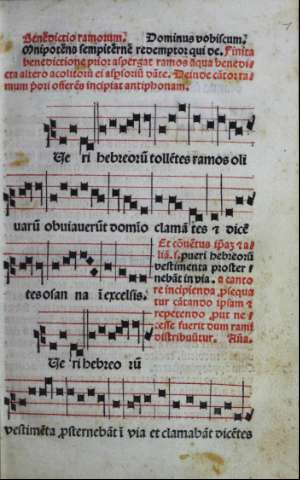 Benedictio ramorum. Dominus vobiscum.
Omnipotens sempiterne redemptor qui de. Finita
benedictione prior aspergat ramos aqua benedi-
cta altero acolitorū et aspsoriū dāte. Deinde cātor ra-
mum pori offerēs incipiat antiphonam.
Ue ri hebreorū tollētes ramos oli
varū obuiauerūt domīo clamā tes et dicē
tes osan na ī excelsis.
Et cōuētus ipaz et a
liā. s. pueri hebreorū
vestimenta proster
nebāt in via. a canto
re incipienda, psequa
tur cātando ipsam et
repetendo, put ne
cesse fuerit dum rami
distribuūtur. Añā.
Ue ri hebreo rū
vestimēta psternebāt ī via et clamabāt dicētes